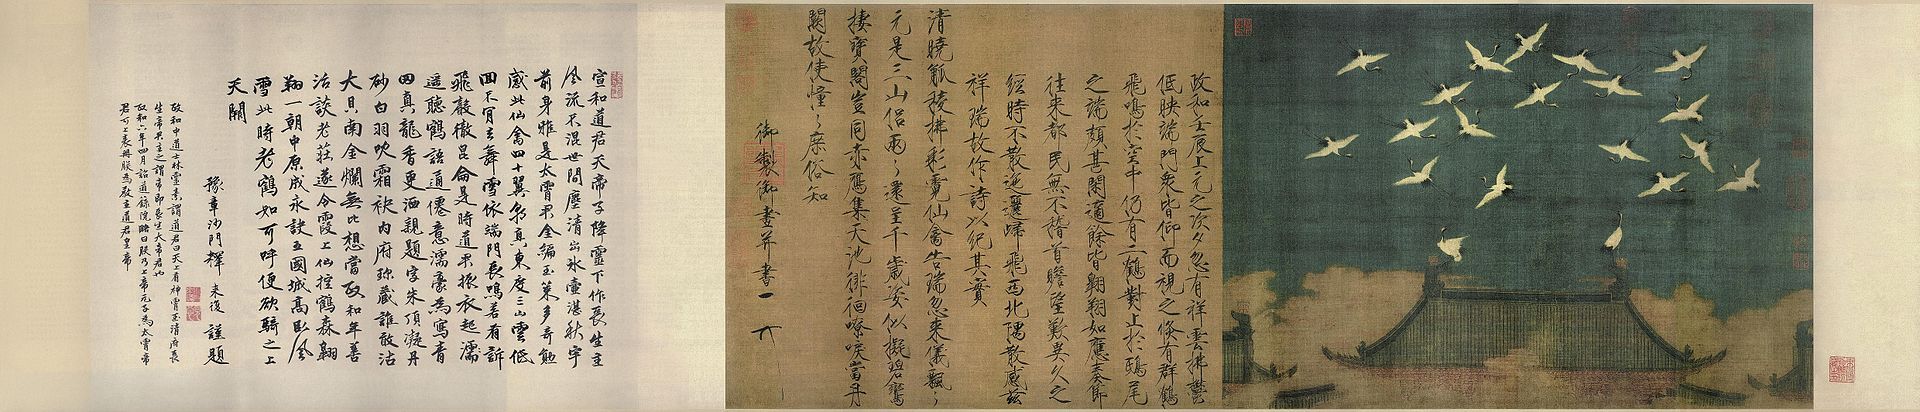 政和壬辰上元之次夕忽有祥雲拂鬱
低映端門衆皆仰而視之倏有群鶴
飛鳴於空中仍有二鶴對止於鴟尾
之端頗甚閑適餘皆翱翔如應奏節
往來都民無不稽首瞻望歎異久之
經時不散迤邐歸飛西北隅散感茲
祥瑞故作詩以紀其實
清曉觚稜拂彩霓仙禽告瑞忽來儀飄〻
元是三山侶兩〻還呈千歲姿似擬碧鸞
棲寶閣豈同赤鴈集天池徘徊嘹唳當丹
闕故使憧〻庶俗知
御製御畫并書
宣和道君天帝子降靈下作長生主
風流不混世間塵清出冰壺湛秋宇
前身雅是太霄君金編玉策多奇勉
感此仙禽四十翼朝真東度三山雲低
回不肯去舞雪依端門長鳴若有訴
飛聲徹崑崙是時道君振衣起濡
遥聽鶴語通僊意濡毫為寫青
田真龍香更洒親題字朱頂凝丹
砂白羽吹霜袂内府珍藏誰敢沽
大貝南金爛無比想當政和年善
治談老莊遂令霞上仙控鶴森翱
翔一朝中原成永訣五國城高臥風
雪此時老鶴如可呼便欲騎之上
天闕
豫章沙門釋来復謹題
政和中道士林靈素謂道君曰天上有神霄玉清府長
生帝君主之謂帝即長生大帝君也
政和六年四月詔道籙院略曰朕乃上帝元子為太霄帝
君可上表冊朕為教主道君皇帝